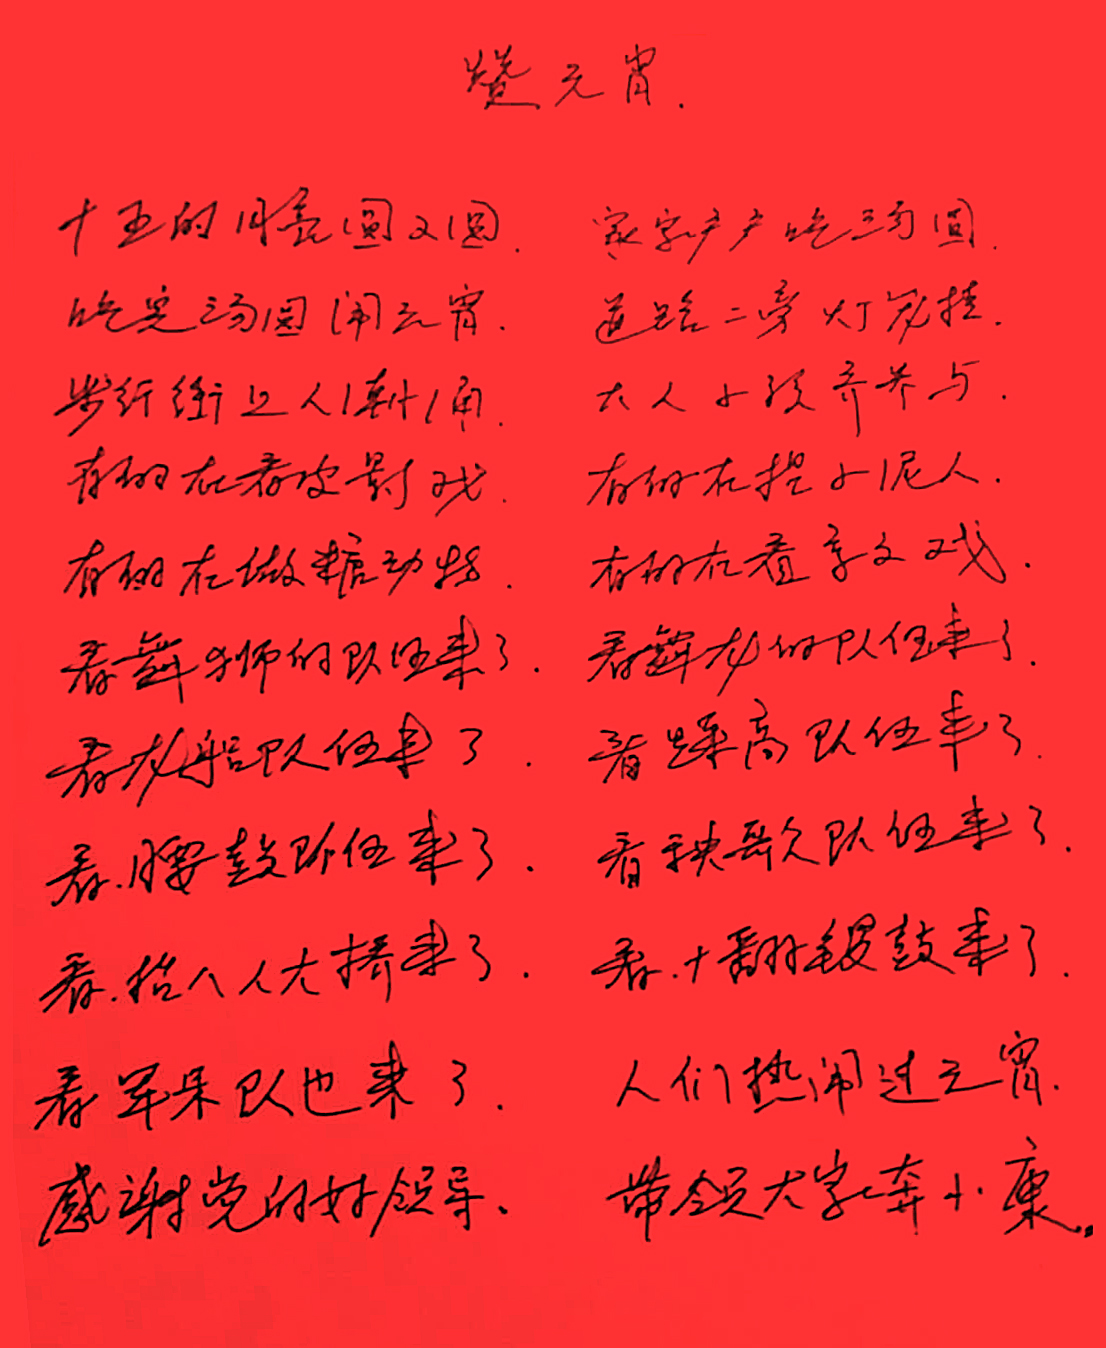 赞元宵.
十五的月亮圆又圆. 家家户户吃汤圆.
吃完汤圆闹元宵. 道路二旁灯笼挂.
步行街上人潮涌. 大人小孩齐参与.
有的在看皮影戏. 有的在捏小泥人.
有的在做糖动物. 有的在看京文戏.
看舞狮的队伍来了. 看舞龙的队伍来了.
看龙船队伍来了. 看踩高队伍来了.
看.腰鼓队伍来了. 看秧歌队伍来了.
看.抬八人大桥来了. 看.十翻锣鼓来了.
看军乐队也来了. 人们热闹过元宵.
感谢党的好领导、 带领大家奔小康。